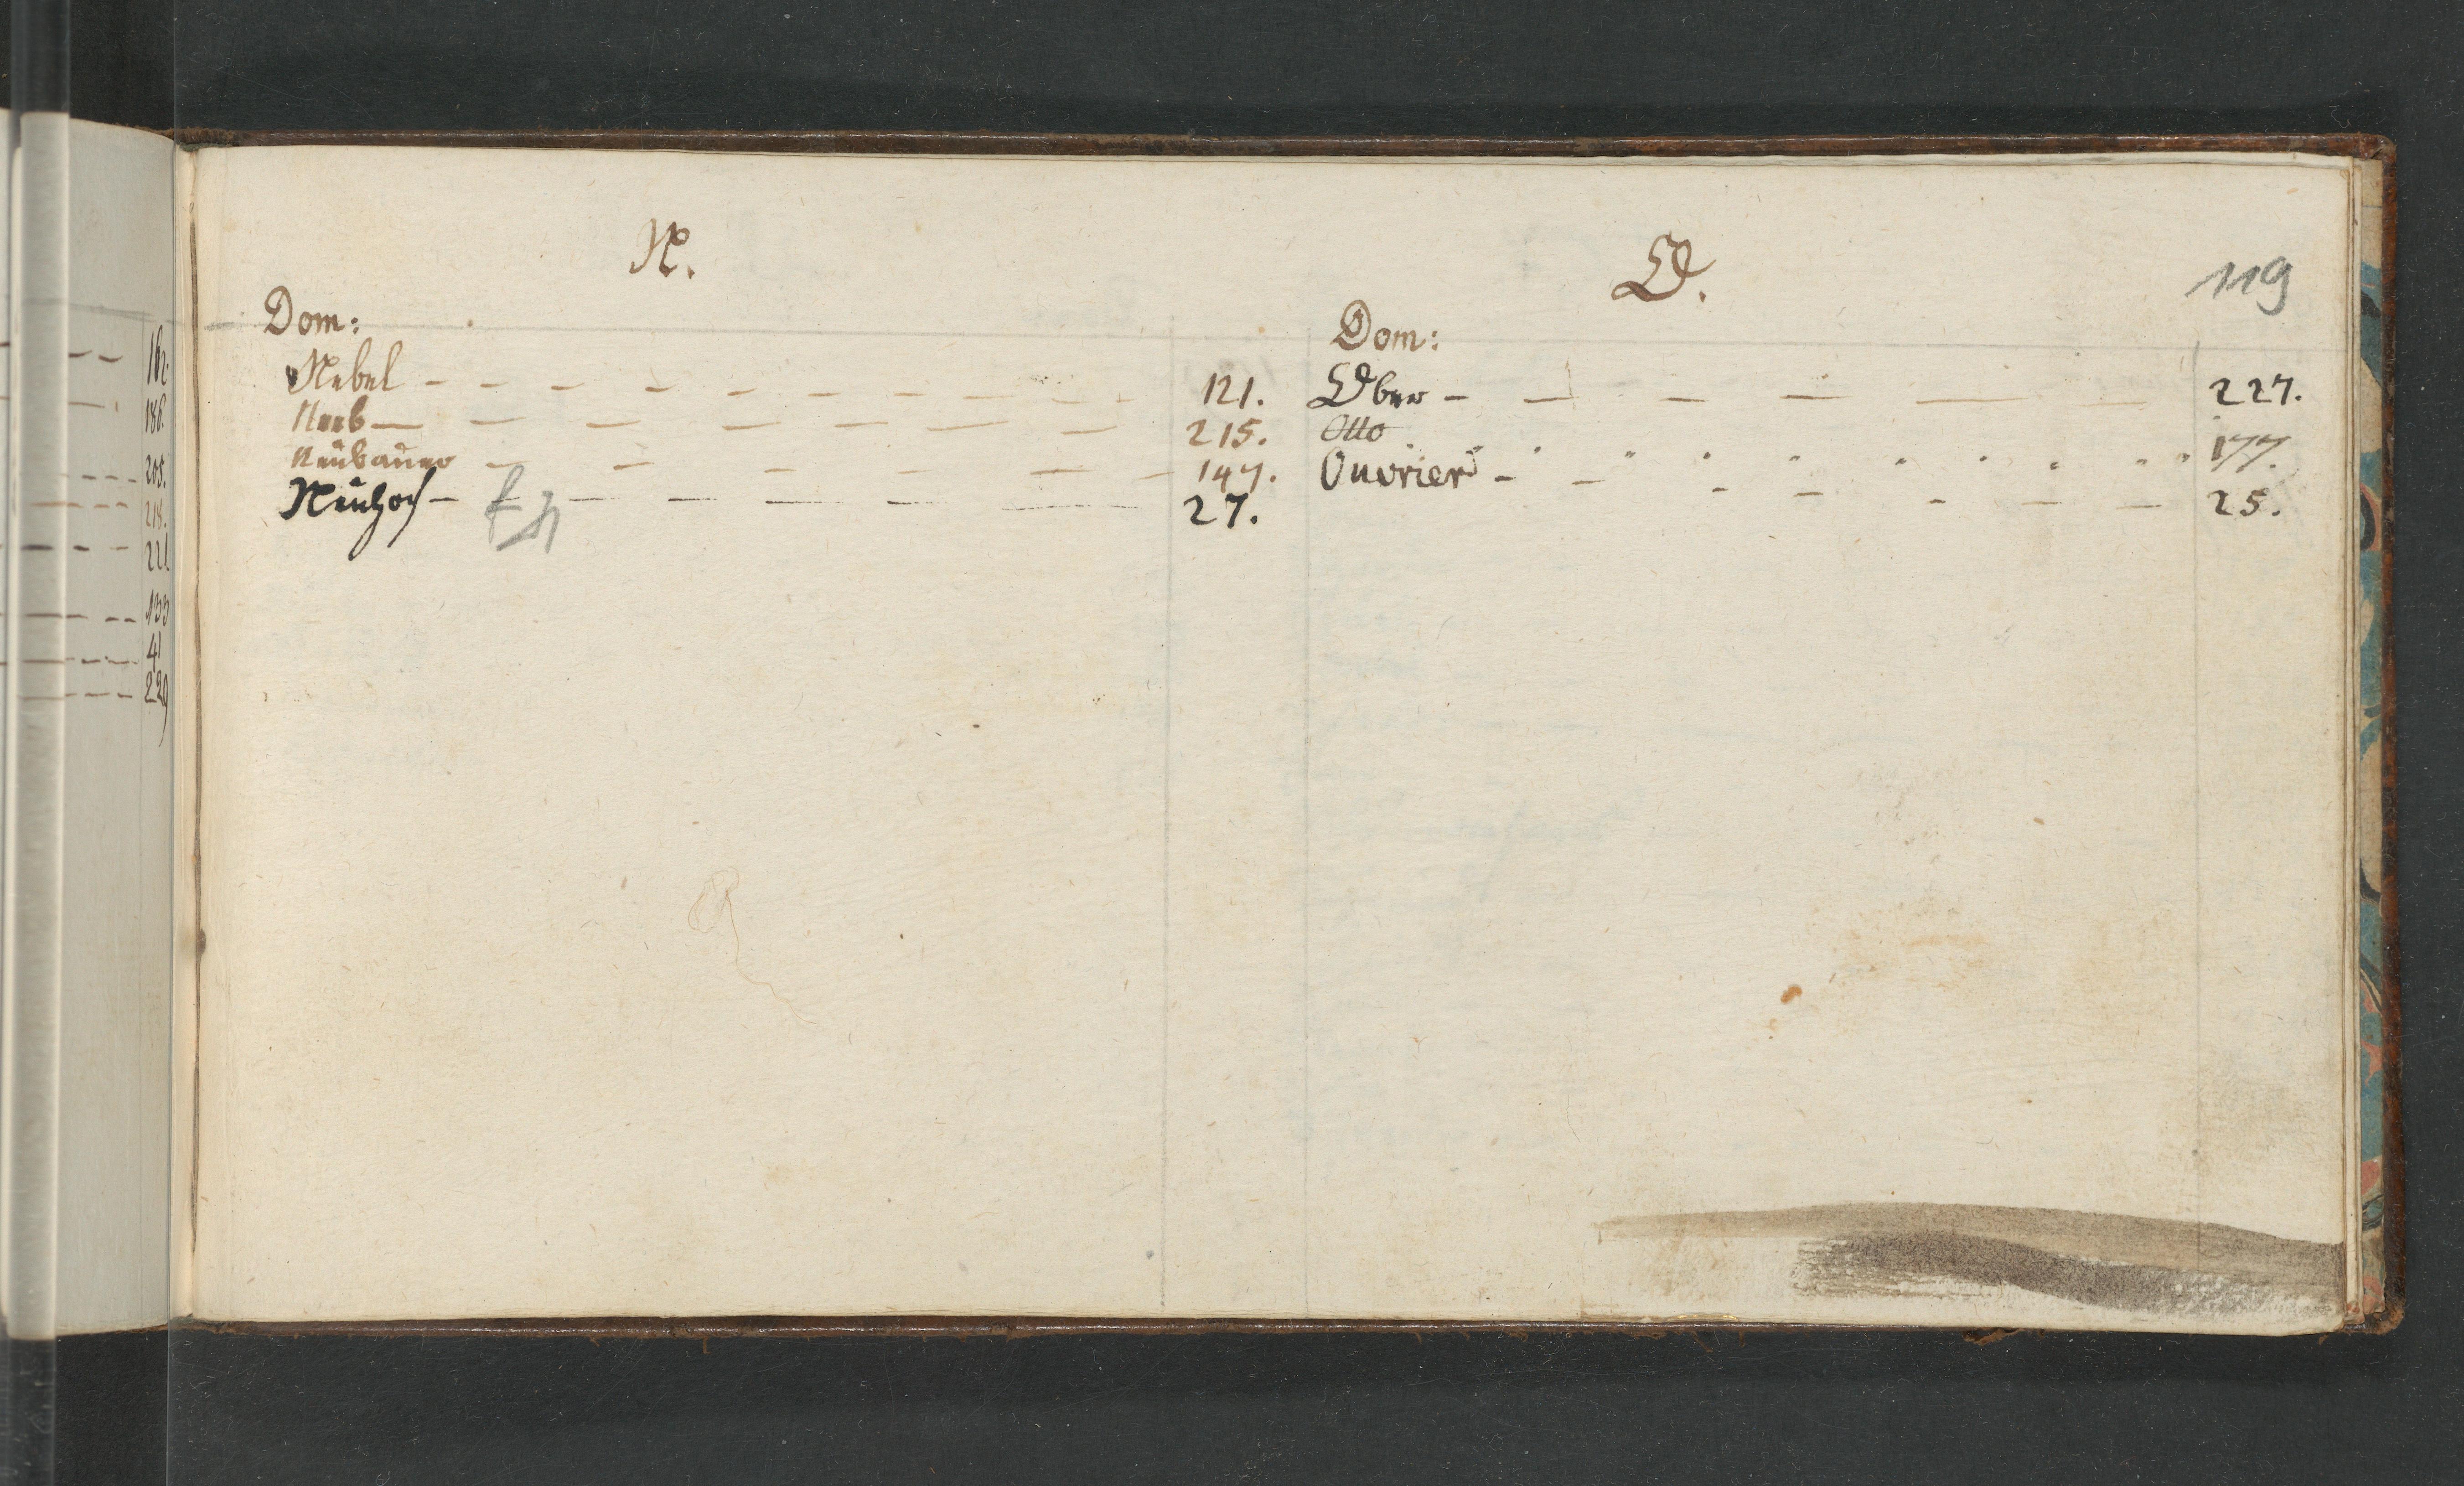 182.
186.
205.
218.
221
133
41
229
N.
Dom:
Nebel - - - - - - - - - 121.
Neeb - - - - - - - 215.
Neübaüer - - - - - - 147.
Neuhof - - - - - - - 27.
119
O.
Dom:
Ober - - - - - - 227.
Otto 177.
Ouvrier - - - - - - - 25.